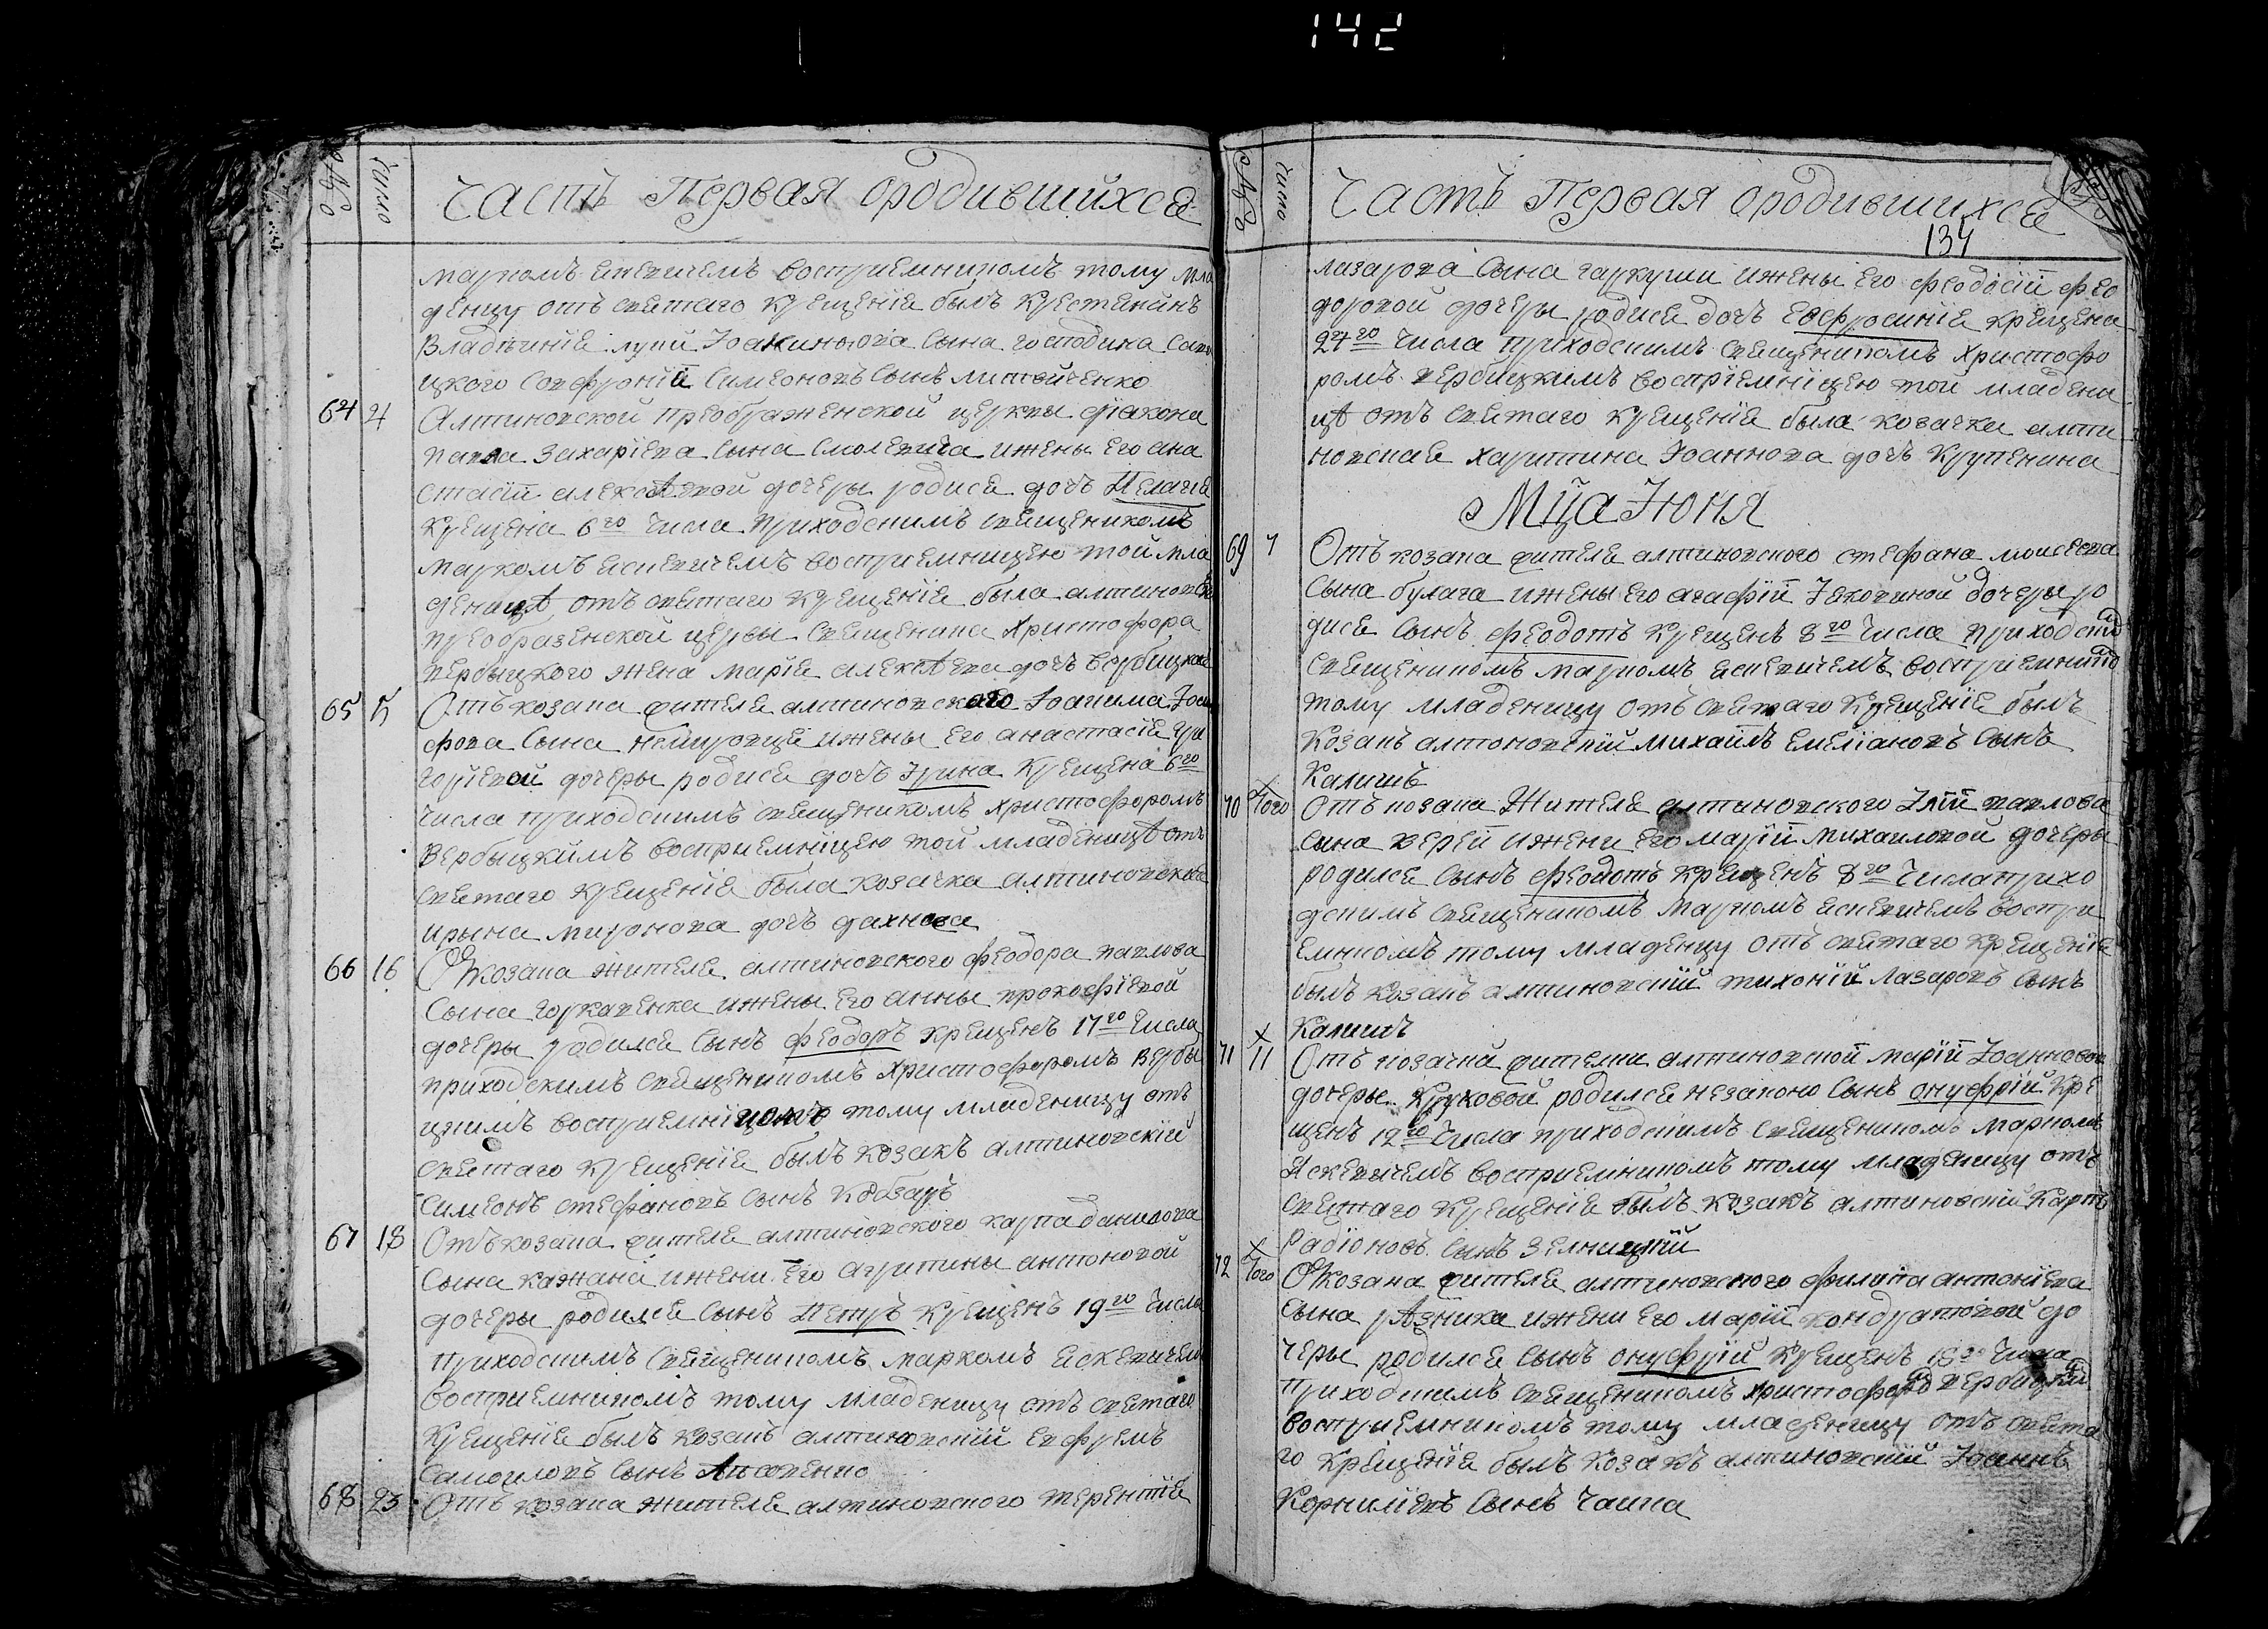 142
№ Число Часть Первая ородившихся
маркомъ яскевичемъ восприемникомъ тому мла
денцу отъ святаго крещенїя былъ крестянинъ
владѣнїя
цкого софронїй Симеоновъ Сынъ литвиченко
64 4 Алтиновской преображенской церкви дїакона
павла захарїева сына Смолевича ижены его ана
стасїи алексѣевой дочеры родися дочъ Пелагїя
крещена 6го числа приходскимъ священикомъ
маркомъ яскевичемъ восприемницею той мла
деницѣ отъ святаго крещенїя была алтиновской
преображенской церкви священика Христофора
вербыцкого жена марїя алексѣева дочъ вербицкая
65 5 Отъ козака жителя алтиновского Іоакима Іоси
фова Сына немировця ижены его анастасїи гри
горїевой дочеры родися дочъ Ірина крещена 6го
числа приходскимъ священикомъ христофоромъ
вербыцкимъ восприемнїцею той младеницѣ отъ
святаго крещенїя была козачка алтиновская
ирына миронова дочъ дахнова
66 16 Отъ козака жителя алтиновского феодора павлова
сына горкавенка ижены его анны прокофїевой
дочеры родился Сынъ феодоръ крещенъ 17го числа
приходскимъ священикомъ Христофоромъ вербы
цкимъ восприемнїкомъ тому младеницу отъ
святаго крещенїя былъ козакъ алтиновскїй
симеонъ стефановъ сынъ кобзарь
67 18 Отъ козака жителя алтиновского карпа данилова
Сына кажана ижени его агрипины антоновой
дочеры родился Сынъ Петръ крещенъ 19го числа
приходскимъ священикомъ маркомъ яскевичемъ
восприемникомъ тому младеницу отъ святаго
крещенїя былъ козакъ алтиновскїй евфремъ
самоиловъ сынъ
68 23 Отъ козака жителя алтиновского терентїя
№ Число Часть Первая ородившихся
134
лазарова Сына гаркуши ижены его феодосїи фео
доровой дочеры родися дочъ Евфросинїя крещена
24го числа приходскимъ священикомъ христофо
ромъ вербицкимъ воспрїемнїцею той младени
цѣ отъ святаго крещенїя была козачка алти
новская харитина Іоаннова дочъ крупенина
Мца Іюня
69 7 Отъ козака жителя алтиновского стефана моисеева
сына булага ижены его агафїи Іаковиной дочеры ро
дися сынъ феодотъ крещенъ 8го числа приходским
священикомъ маркомъ яскевичемъ восприемником
тому младеницу отъ святаго крещенїя былъ
козакъ алтоновскїй михаилъ емелїановъ сынъ
Калишъ
70 Того Отъ козака жителя алтиновского Ілїи павлова
сына верей ижени его марїи михаиловой дочеры
родился сынъ феодотъ крещенъ 8го числа прихо
дскимъ священикомъ маркомъ яскевичемъ воспри
емнкомъ тому младенцу отъ святаго крещенїя
былъ козакъ алтиновскїй тихонїй лазаровъ сынъ
Калишъ
71 11 Отъ козачки жителки алтиновской марїи Іоанновой
дочеры круковой родился незаконо Сынъ онуфрїй кре
щенъ 12го числа приходскимъ священикомъ маркомъ
Яскевичемъ восприемникомъ тому младеницу отъ
святаго крещенїя былъ козакъ алтиновскїй Карпъ
Радїоновъ сынъ Зелницкїй
72 Того Отъ козака жителя алтиновского филипа антонїева
сына рѣзника ижени его марїи кондратовой до
черы родился сынъ онуфрїй крещенъ числа
приходскимъ священикомъ христофоромъ вербицким
восприемникомъ тому младеницу отъ свята
го крещенїя былъ козакъ алтиновскїй Іоаннъ
Корнилїевъ Сынъ чаика